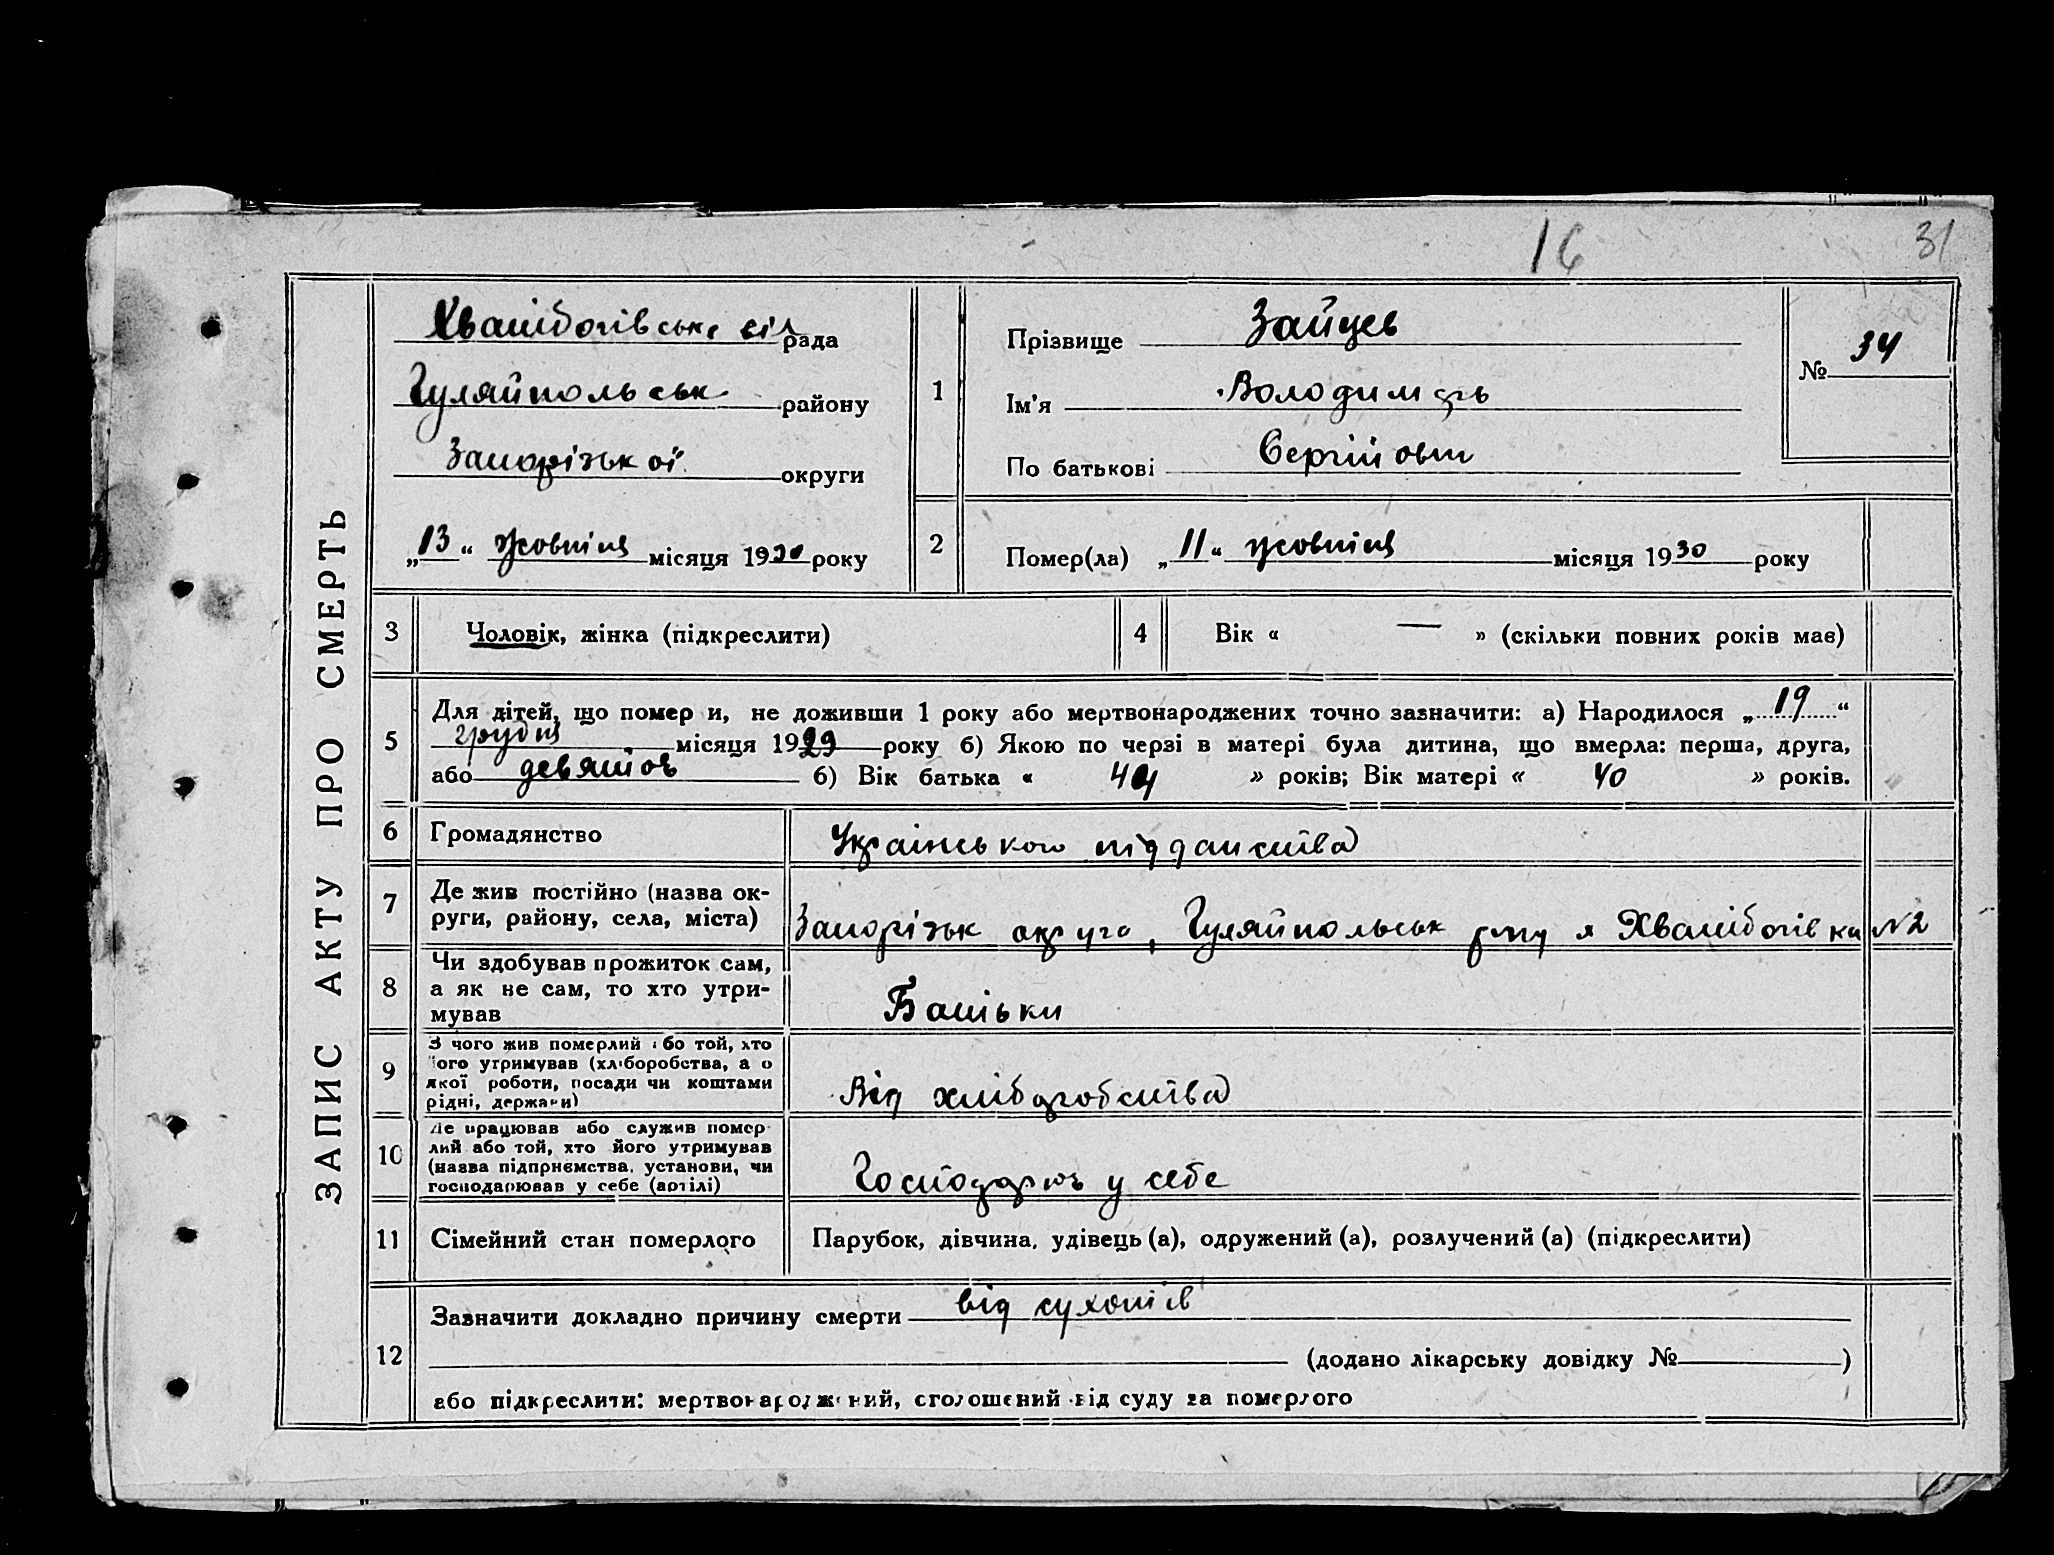 16 31
ЗАПИС АКТУ ПРО СМЕРТЬ
Хватбогівське сіл рада
Гуляйпольськ району
Запорізької округи
„13“ жовтня місяця 1930 року
1 Прізвище Зайцев
Ім'я Володимирь
По батькові Сергійович
№ 34
2 Помер(ла) „11“ жовтня місяця 1930 року
3 Чоловік, жінка (підкреслити)
4 Вік « — » (скільки повних років має)
5 Для дітей, що померли, не доживши 1 року або мертвонароджених точно зазначити: а) Народилося „19“
грудня місяця 1929 року б) Якою по черзі в матері була дитина, що вмерла: перша, друга,
або девятою б) Вік батька « 44 » років; Вік матері « 40 » років.
6 Громадянство Українського підданства
7 Де жив постійно (назва ок-
руги, району, села, міста) Запорізьк округа, Гуляйпольськ рну Хватбогівка №2
8 Чи здобував прожиток сам,
а як не сам, то хто утри-
мував Батьки
9 З чого жив померлий або той, хто
його утримував (хліборобства, а о
якої роботи, посади чи коштами
рідні, держави) Від хліборобства
10 Де працював або служив помер-
лий або той, хто його утримував
(назва підприємства, установи, чи
господарював у себе (артілі) Господарюю у себе
11 Сімейний стан померлого Парубок, дівчина, удівець (а), одружений (а), розлучений (а) (підкреслити)
12 Зазначити докладно причину смерти від сухотів
(додано лікарську довідку № )
або підкреслити: мертвонароджений, оголошений від суду за померлого